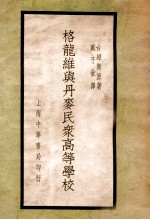 格龍維與丹麥民衆高等學校
戴子欽譯
上海中華書局印行